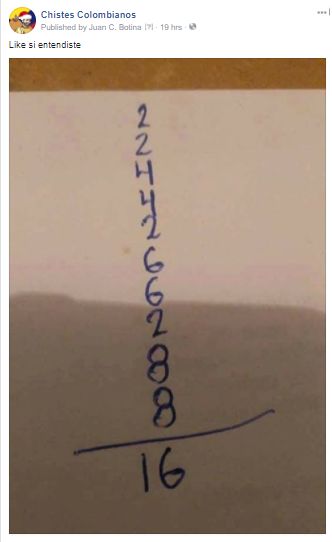 Chistes Colombianos
Published by Juan C. Botina [?] · 19 hrs ·
Like si entendiste
2
2
4
4
2
6
6
2
8
8
16